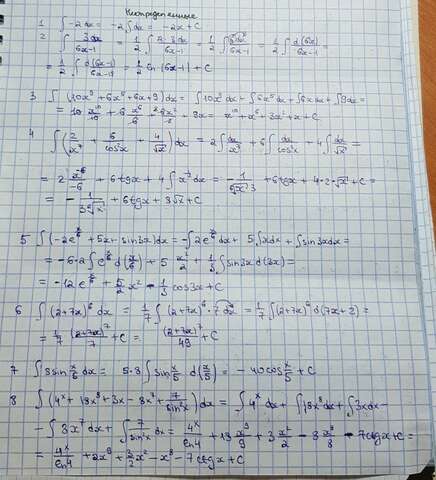 Неопределенные
1 ∫-2dx = -2∫dx = -2x + C
2 ∫ 3dx/(6x-1) = 1/2 ∫ 2·3dx/(6x-1) = 1/2 ∫ 6dx/(6x-1) = 1/2 ∫ d(6x)/(6x-1) =
= 1/2 ∫ d(6x-1)/(6x-1) = 1/2 ln(6x-1) + C
3 ∫(10x⁹ + 6x⁵ + 6x + 9)dx = ∫10x⁹dx + ∫6x⁵dx + ∫6xdx + ∫9dx =
= 10 x¹⁰/10 + 6 x⁶/6 + 6x²/2 + 9x = x¹⁰ + x⁶ + 3x² + x + C
4 ∫(2/x⁷ + 6/cos²x + 4/√x)dx = 2∫dx/x⁷ + 6∫dx/cos²x + 4∫dx/√x =
= 2 x⁻⁶/-6 + 6tgx + 4∫ dx = + 6tgx + 4·2·√x + C =
= + 6tgx + 8√x + C
5 ∫(-2e^(x/6) + 5x + sin3x)dx = -∫2e^(x/6)dx + 5∫xdx + ∫sin3xdx =
= -6·2∫e^(x/6) d(x/6) + 5 x²/2 + 1/3 ∫sin3x d(3x) =
= -12e^(x/6) + 5/2 x² - 1/3 cos3x + C
6 ∫(2+7x)⁶dx = 1/7 ∫(2+7x)⁶·7dx = 1/7 ∫(2+7x)⁶ d(7x+2) =
= 1/7 (2+7x)⁷/7 + C = (2+7x)⁷/49 + C
7 ∫8sin x/5 dx = 5·8∫sin x/5 d(x/5) = -40cos x/5 + C
8 ∫(4ˣ + 18x⁸ + 3x - 8x⁷ + 7/sin²x)dx = ∫4ˣdx + ∫18x⁸dx + ∫3xdx -
- ∫8x⁷dx + ∫7/sin²x dx = 4ˣ/ln4 + 18 x⁹/9 + 3 x²/2 - 8 x⁸/8 - 7ctgx + C =
= 4ˣ/ln4 + 2x⁹ + 3/2 x² - x⁸ - 7ctgx + C